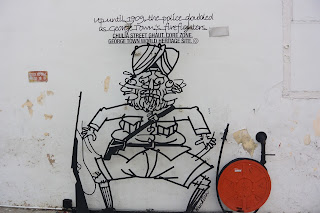 up until 1909 the police doubled
as George Town's firefighters
CHULIA STREET GHAUT, CORE ZONE,
GEORGE TOWN WORLD HERITAGE SITE